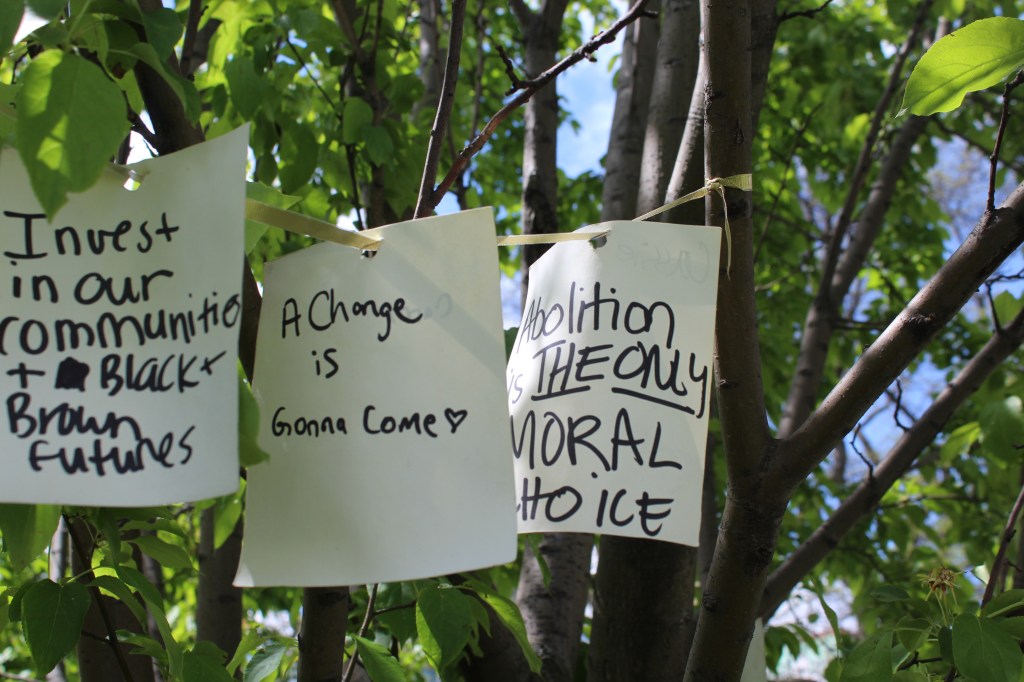 Invest
in our
communitie
+ Black +
Brown
futures
A Change
is
Gonna Come
Abolition
is THE ONLY
MORAL
CHOICE